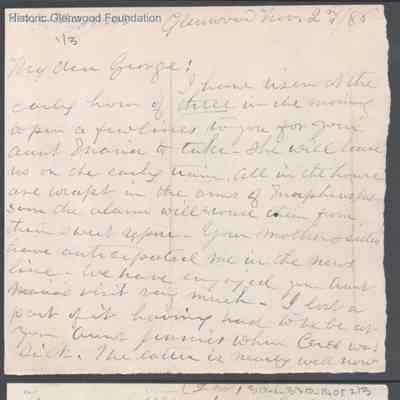 Historic Glenwood Foundation
Glenwood Nov 2nd/85
1/3
My dear George!
I have risen at the
early hour of three in the morning
to pen a few lines to you for your
aunt Maria to take. She will leave
us on the early train, all in the house
are wrapt in the arms of Morpheus
soon the alarm will rouse them from
their sweet repose - Your mother & sister
have anticipated me in the news
line - We have enjoyed your Aunt
Maria's visit very much - I lost a
part of it having had to be at
your Aunt Jennies when was
sick. The latter is nearly well now